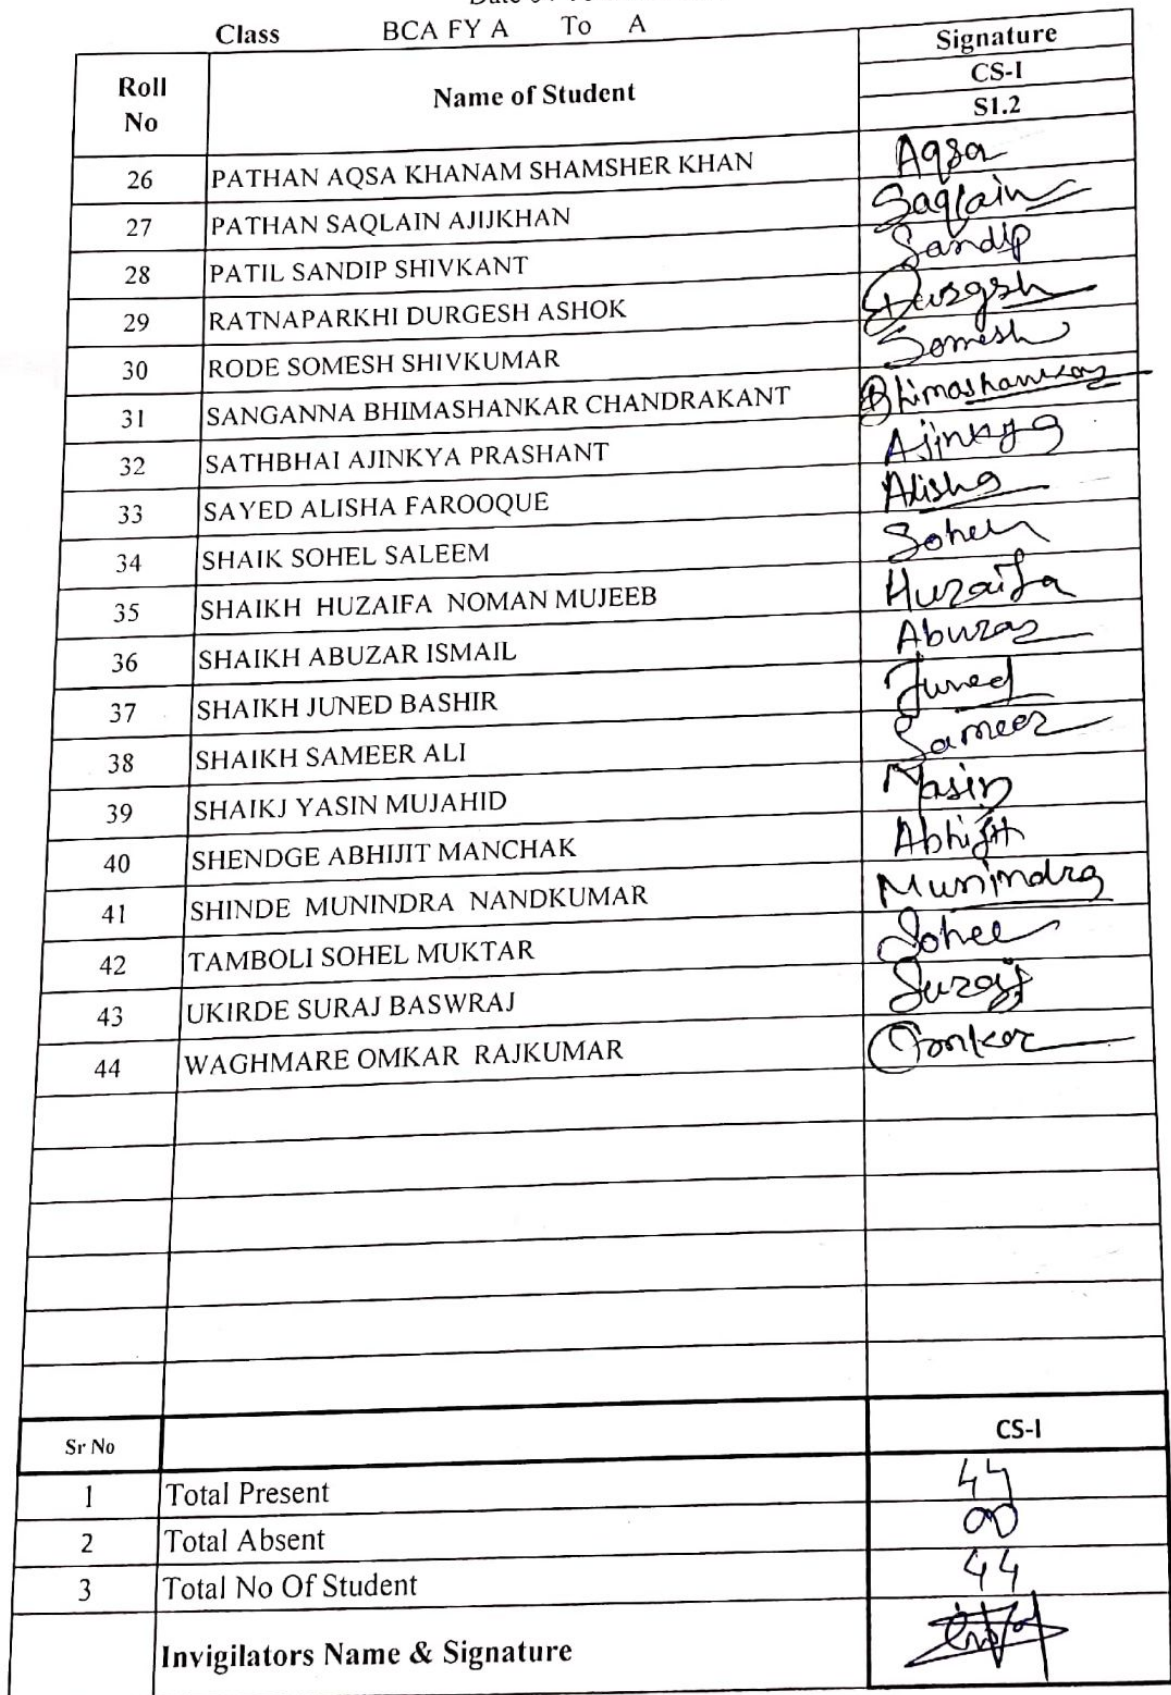 Class BCA FY A To A
Roll No Name of Student Signature
CS-I
S1.2
26 PATHAN AQSA KHANAM SHAMSHER KHAN Aqsa
27 PATHAN SAQLAIN AJIJKHAN Saqlain
28 PATIL SANDIP SHIVKANT Sandip
29 RATNAPARKHI DURGESH ASHOK Durgesh
30 RODE SOMESH SHIVKUMAR Somesh
31 SANGANNA BHIMASHANKAR CHANDRAKANT Bhimashankar
32 SATHBHAI AJINKYA PRASHANT Ajinkya
33 SAYED ALISHA FAROOQUE Alisha
34 SHAIK SOHEL SALEEM Sohel
35 SHAIKH HUZAIFA NOMAN MUJEEB Huzaifa
36 SHAIKH ABUZAR ISMAIL Abuzar
37 SHAIKH JUNED BASHIR Juned
38 SHAIKH SAMEER ALI Sameer
39 SHAIKJ YASIN MUJAHID Yasin
40 SHENDGE ABHIJIT MANCHAK Abhijit
41 SHINDE MUNINDRA NANDKUMAR Munindra
42 TAMBOLI SOHEL MUKTAR Sohel
43 UKIRDE SURAJ BASWRAJ Suraj
44 WAGHMARE OMKAR RAJKUMAR Omkar
Sr No CS-I
1 Total Present 44
2 Total Absent 00
3 Total No Of Student 44
Invigilators Name & Signature